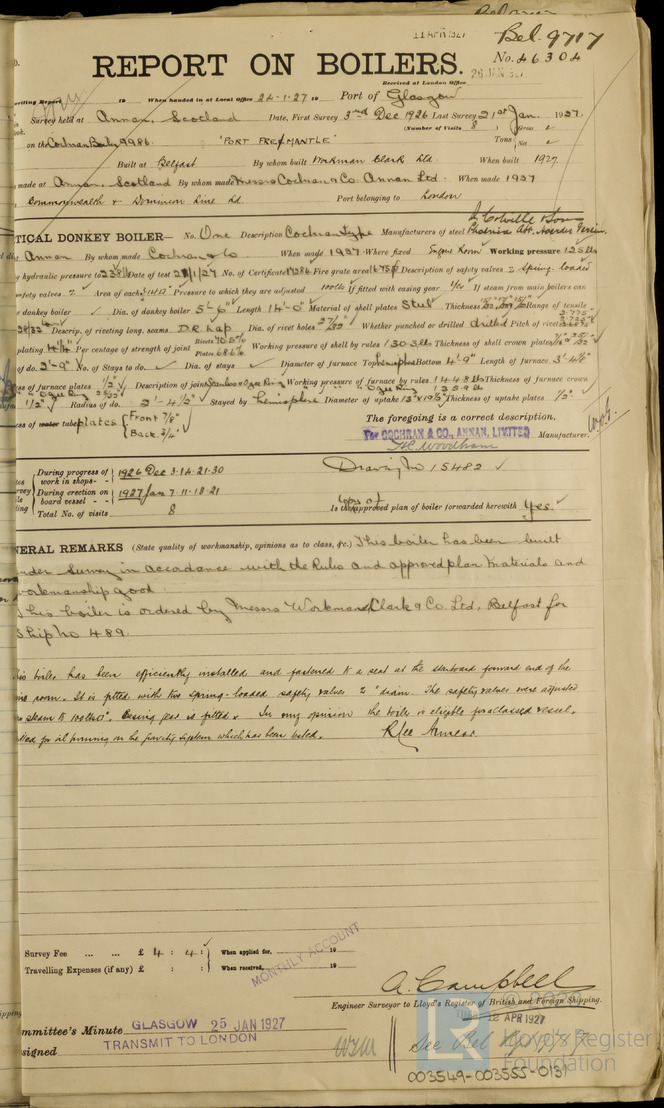 11 APR 1927
Bel. 9717
REPORT ON BOILERS.
No. 46304
Received at London Office
26 JAN 1927
When handed in at Local Office 24.1.27 19 Port of Glasgow
Survey held at Annan, Scotland Date, First Survey 3rd Dec 1926 Last Survey 21st Jan. 1927.
(Number of Visits 8) Gross
on the Cochran Boiler 9986. "PORT FREMANTLE" Tons Net
Built at Belfast By whom built Workman Clark Ltd When built 1927.
made at Annan, Scotland By whom made Messrs Cochran & Co. Annan Ltd. When made 1927
Commonwealth & Dominion Line Ld Port belonging to London
TICAL DONKEY BOILER— No. One Description Cochran type Manufacturers of steel
Annan By whom made Cochran & Co When made 1927 Where fixed Engine Room Working pressure 125 lbs
hydraulic pressure to Date of test 21/1/27 No. of Certificate Fire grate area Description of safety valves 2 Spring-loaded
safety valves 2 Area of each Pressure to which they are adjusted If fitted with easing gear Yes If steam from main boilers can
donkey boiler Dia. of donkey boiler 5'-6" Length 14'-0" Material of shell plates Steel Thickness Range of tensile
Descrip. of riveting long. seams D.R. Lap Dia. of rivet holes 27/32 Whether punched or drilled drilled Pitch of rivets
plating 4 1/4 Per centage of strength joint Rivets Plates 68.6% Working pressure of shell by rules 130.3 lbs Thickness of shell crown plates
of do. 2'-9" No. of Stays to do. Dia. of stays Diameter of furnace Top Hemisphere Bottom 4'-9" Length of furnace 3'-4 1/2"
ess of furnace plates 1/2" Description of joint Working pressure of furnace by rules 144.8 lbs Thickness of furnace crown
1/2" Radius of do. 2'-4 1/2" Stayed by Hemisphere Diameter of uptake Thickness of uptake plates 1/2"
ess of water tube plates Front 7/8" Back 3/4"
The foregoing is a correct description,
For COCHRAN & CO., ANNAN, LIMITED Manufacturer.
During progress of work in shops - - 1926 Dec 3.14.21.30
During erection on board vessel - - 1927 Jan 7.11.18.21
Total No. of visits 8
Drawing No 15482
Is the copy of approved plan of boiler forwarded herewith Yes.
NERAL REMARKS (State quality of workmanship, opinions as to class, &c.) This boiler has been built
under Survey in accordance with the Rules and approved plan Materials and
workmanship good.
This boiler is ordered by Messrs Workman, Clark & Co. Ltd, Belfast for
Ship No 489.
This boiler has been efficiently installed and fastened to a seat at the starboard forward end of the
room. It is fitted with two spring-loaded safety valves 2" diam. The safety valves were adjusted
steam to 100 lbs. Easing gear is fitted. In my opinion the boiler is eligible for a classed vessel.
for oil burning on the gravity system which has been tested. R Lee Amess
Survey Fee ... ... £ 4 : 4 : When applied for, 19
Travelling Expenses (if any) £ : : When received, 19
MONTHLY ACCOUNT
A. Campbell
Engineer Surveyor to Lloyd's Register of British and Foreign Shipping.
mmittee's Minute GLASGOW 25 JAN 1927
12 APR 1927
signed TRANSMIT TO LONDON
See Bel
Lloyd's Register
Foundation
003549-003555-0131